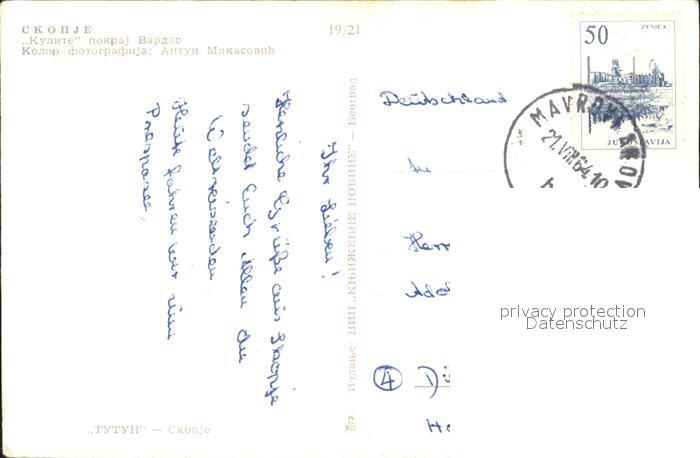 СКОПЈЕ
„Кулите" покрај Вардар
Колор фотографија: Антун Микасовић
19/21
ZENICA
50
JUGOSLAVIJA
MAVROVI
21.VIII 64.10
Издање: НИП „КЊИЖЕВНЕ НОВИНЕ" — Београд
Ihr Lieben!
Herzliche Grüße aus Skopje
sendet Euch Allen die
Weltreisenden
Heute fahren wir zum
Prespasee.
Deutschland
An
Herr
Ado
④ Dü
„ТУТУН" — Скопје
privacy protection
Datenschutz